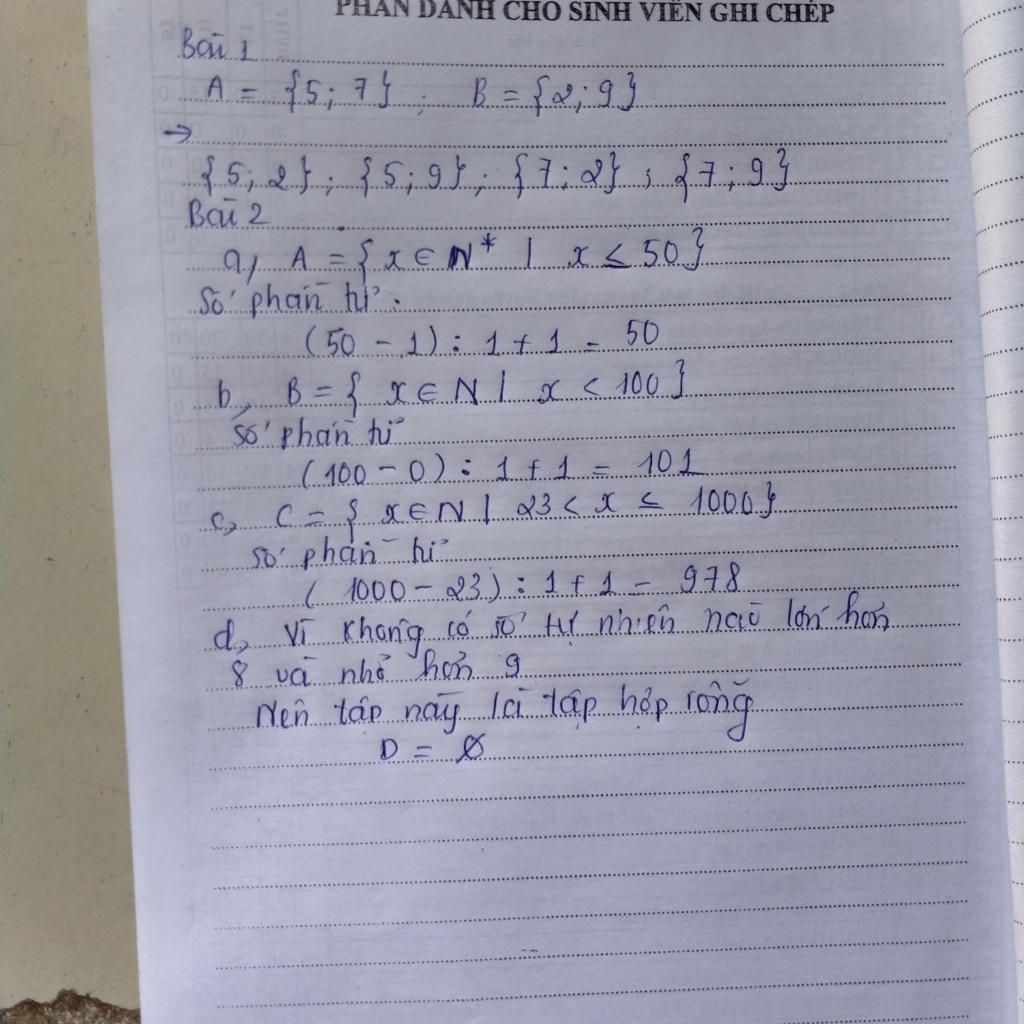 PHẦN DÀNH CHO SINH VIÊN GHI CHÉP
Bài 1
A = {5; 7} ; B = {2; 9}
→
{5; 2} ; {5; 9} ; {7; 2} ; {7; 9}
Bài 2
a, A = { x ∈ N* | x ≤ 50}
Số phần tử :
(50 - 1) : 1 + 1 = 50
b, B = { x ∈ N | x < 100 }
Số phần tử
(100 - 0) : 1 + 1 = 101
c, C = { x ∈ N | 23 < x ≤ 1000}
Số phần tử
( 1000 - 23) : 1 + 1 = 978
d, Vì không có số tự nhiên nào lớn hơn
8 và nhỏ hơn 9
Nên tập này là tập hợp rỗng
D = ∅